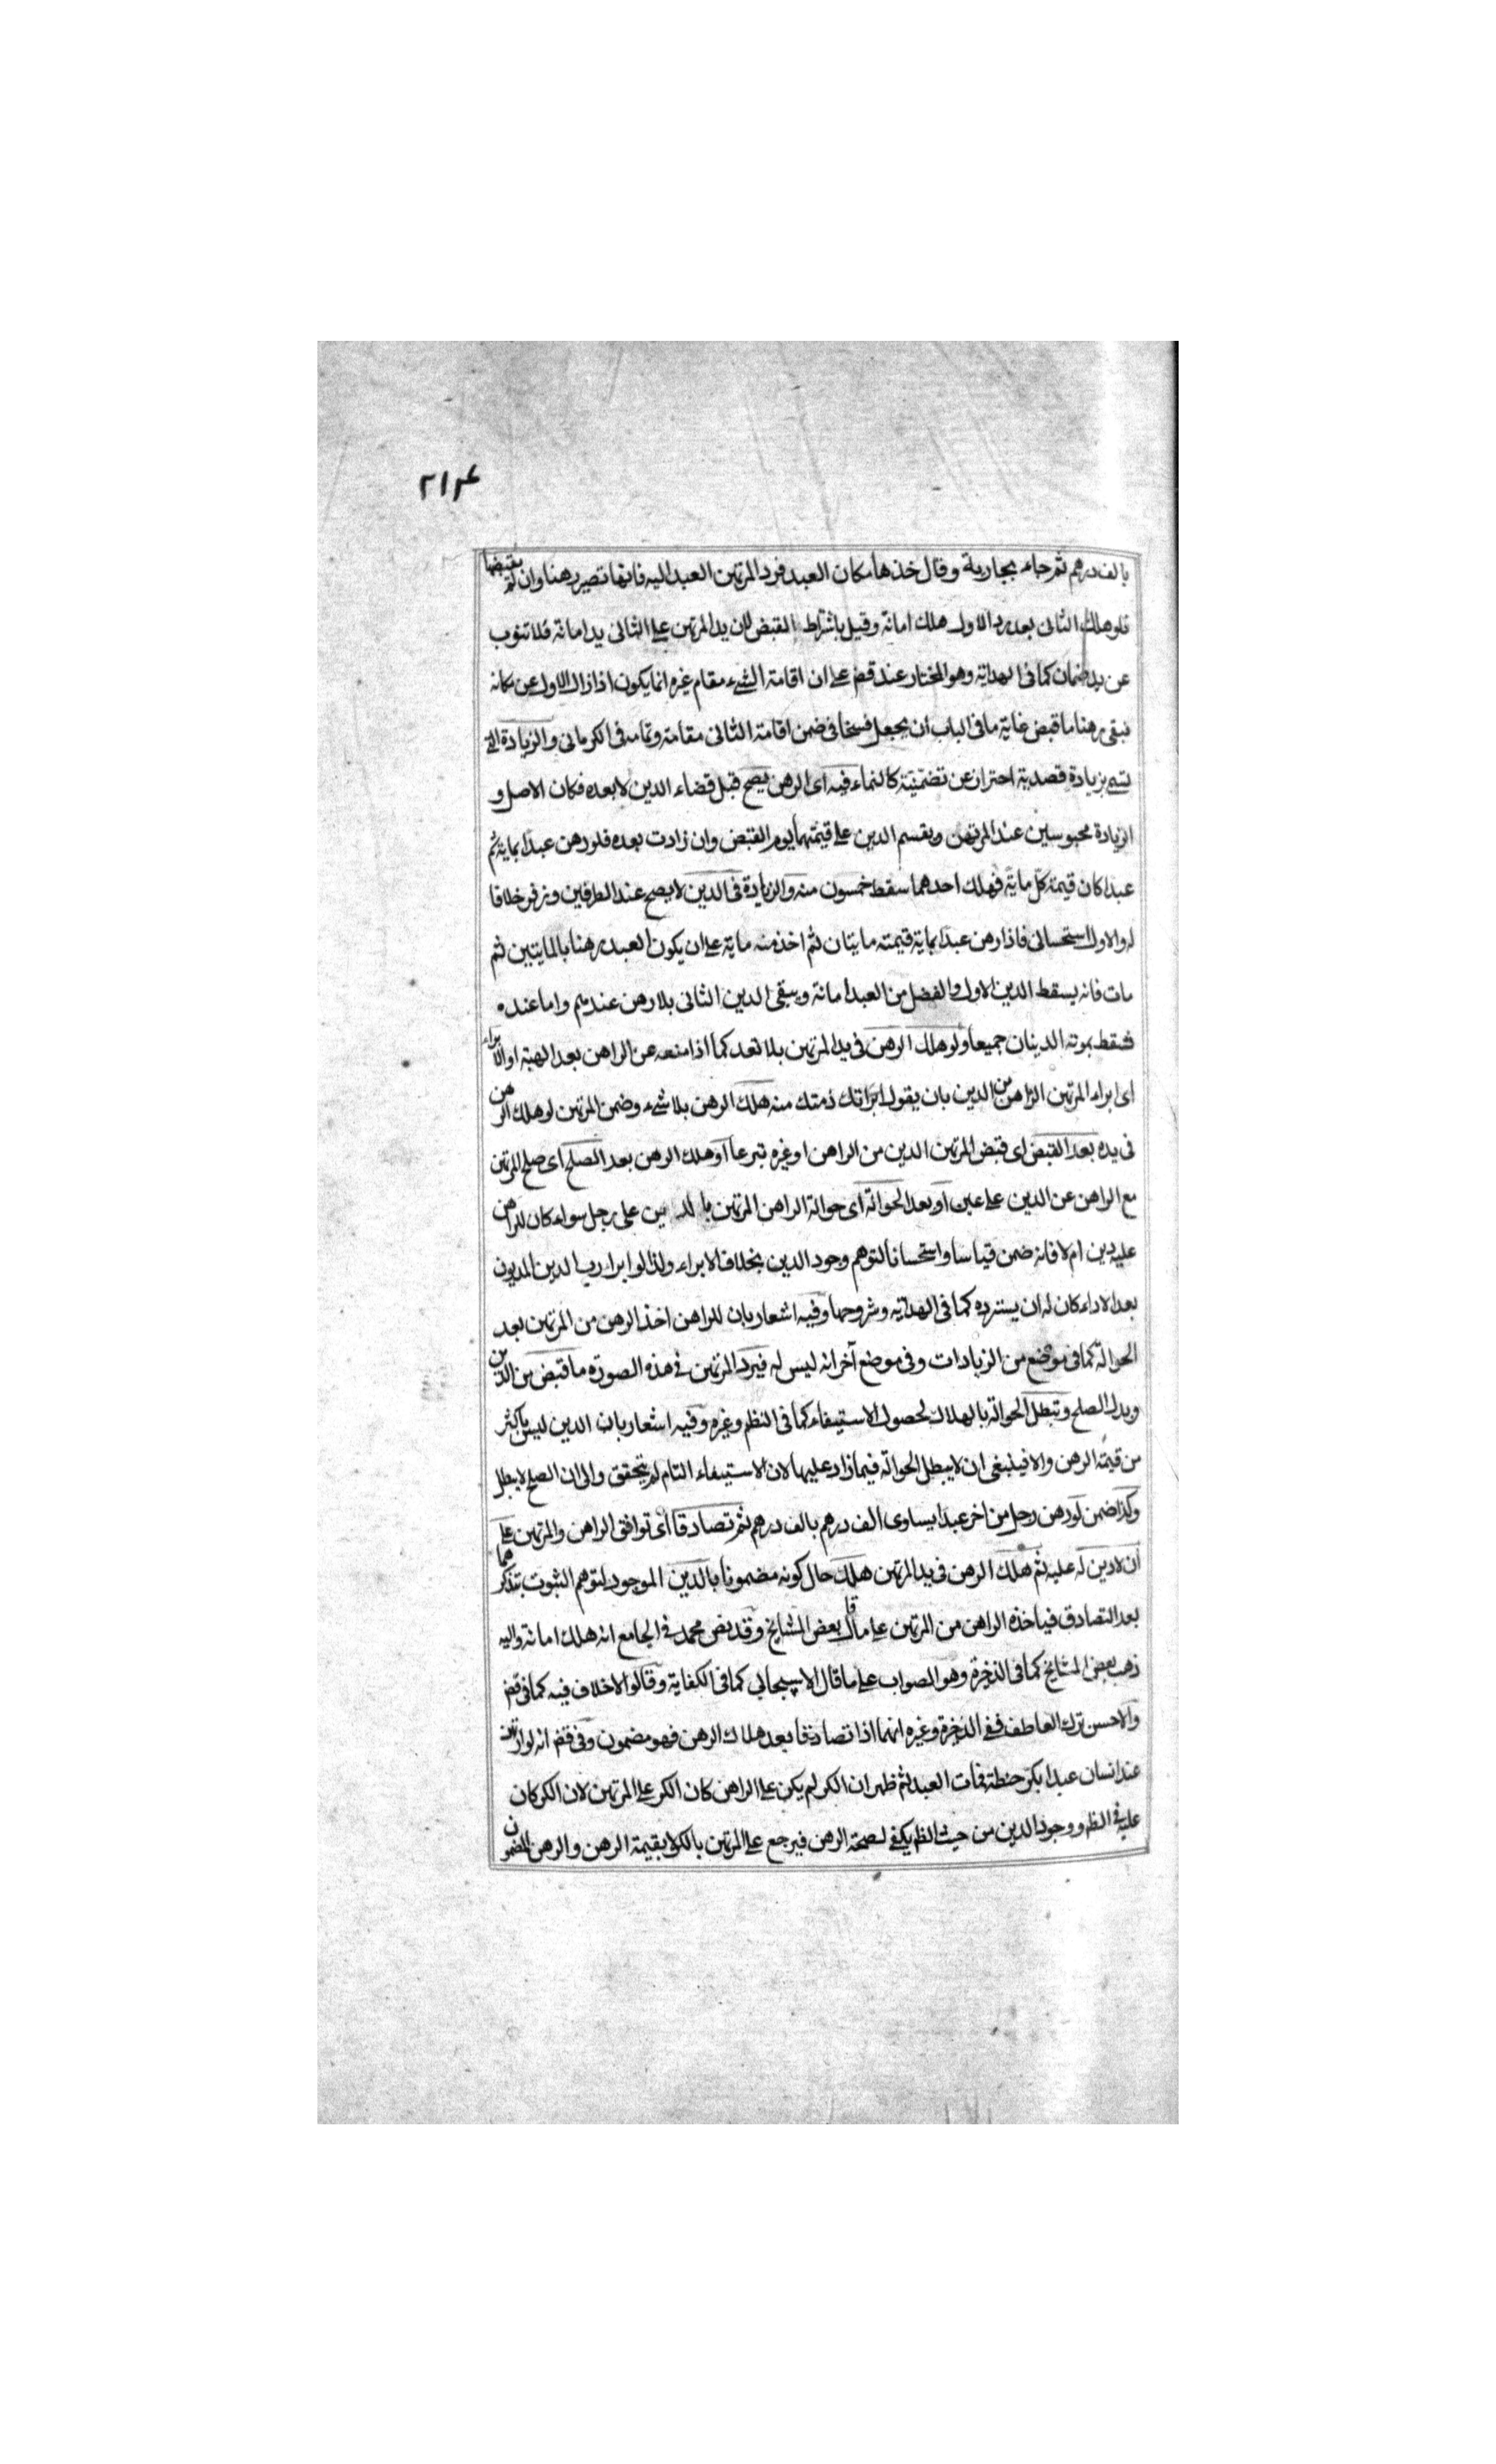 ٢١٤
بالف درهم ثم جاء بجارية وقال خذها مكان العبد فرد المرتهن العبد اليه فانها تصير رهنا وان لم يقبضها
فلو هلك الثانى بعد رد الاول هلك امانة وقيل باشتراط القبض لان يد المرتهن على الثانى يد امانة فلا تنوب
عن يد ضمان كما فى الهداية وهو المختار عند قض على ان اقامة الشىء مقام غيره انما يكون اذا زال الاول عن مكانه
فبقى رهنا ما قبض غاية ما فى الباب ان يجعل فسخا فى ضمن اقامة الثانى مقامه وتمامه فى الكرمانى والزيادة التى
تسمى بزيادة قصدية احتراز عن تضمنية كالنماء فيه اى الرهن يصح قبل قضاء الدين لا بعده فكان الاصل و
الزيادة محبوسين عند المرتهن ويقسم الدين على قيمتهما يوم القبض وان زادت بعده فلو رهن عبدا بماية ثم
عبدا كان قيمة كل ماية فهلك احدهما سقط خمسون منه والزيادة فى الدين لا يصح عند الطرفين وزفر خلافا
له والاول استحسانى فاذا رهن عبدا بماية قيمته مايتان ثم اخذ منه ماية على ان يكون العبد رهنا بالمايتين ثم
مات فانه يسقط الدين الاول والفضل من العبد امانة ويبقى الدين الثانى بلا رهن عندهم واما عنده
فسقط بموته الدينان جميعا ولو هلك الرهن فى يد المرتهن بلا تعد كما اذا منعه عن الراهن بعد الهبة او الابراء
اى ابراء المرتهن الراهن من الدين بان يقول ابراتك ذمتك منه هلك الرهن بلا شىء وضمن المرتهن لو هلك الرهن
فى يده بعد القبض اى قبض المرتهن الدين من الراهن او غيره تبرعا او هلك الرهن بعد الصلح اى صلح المرتهن
مع الراهن عن الدين على عين او بعد الحوالة اى حوالة الراهن المرتهن بالدين على رجل سواء كان للراهن
عليه دين ام لا فانه ضمن قياسا واستحسانا لتوهم وجود الدين بخلاف الابراء ولذا لو ابرا رب الدين المديون
بعد الاداء كان له ان يسترده كما فى الهداية وشروحها وفيه اشعار بان للراهن اخذ الرهن من المرتهن بعد
الحوالة كما فى موضع من الزيادات وفى موضع آخر انه ليس له فيرد المرتهن فى هذه الصورة ما قبض من الدين
وبدل الصلح وتبطل الحوالة بالهلاك لحصول الاستيفاء كما فى النظم وغيره وفيه اشعار بان الدين ليس باكثر
من قيمة الرهن والا فينبغى ان لا يبطل الحوالة فيما زاد عليها لان الاستيفاء التام لم يتحقق والى ان الصلح لا يبطل
وكذا ضمن لو رهن رجل من اخر عبدا يساوى الف درهم بالف درهم ثم تصادقا اى توافق الراهن والمرتهن على
ان لا دين له عليه ثم هلك الرهن فى يد المرتهن هلك حال كونه مضمونا بالدين الموجود لتوهم الثبوت بتذكرهما
بعد التصادق فياخذه الراهن من المرتهن على ما قال بعض المشايخ وقد نص محمد فى الجامع انه هلك امانة واليه
ذهب بعض المشايخ كما فى الذخيرة وهو الصواب على ما قال الاسبيجابى كما فى الكفاية وقالوا لا خلاف فيه كما فى قض
والاحسن ترك العاطف ففى الذخيرة وغيره انهما اذا تصادقا بعد هلاك الرهن فهو مضمون وفى قض انه لو ارتهن
عند انسان عبدا بكر حنطة فمات العبد ثم ظهر ان الكر لم يكن على الراهن كان الكر على المرتهن لان الكر كان
عليه فى الظ ووجود الدين من حيث الظ يكفى لصحة الرهن فيرجع على المرتهن بالكر لا بقيمة الرهن والرهن المضمون